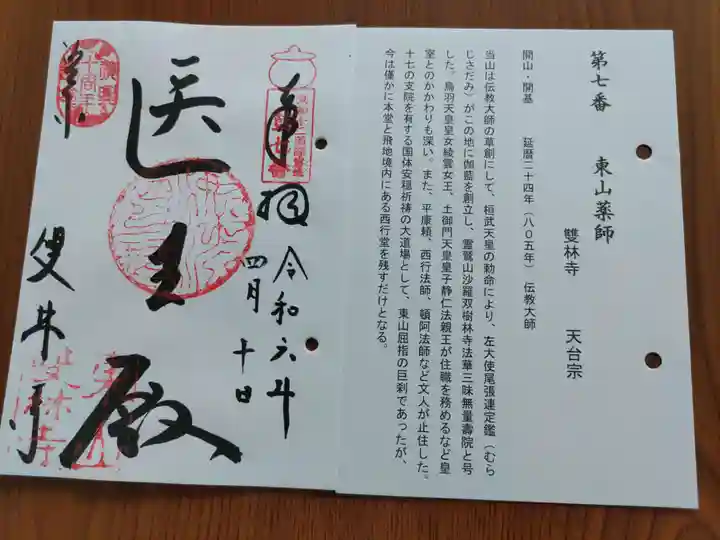 第七番　東山薬師
雙林寺　天台宗
開山・開基　延暦二十四年（八〇五年）伝教大師
当山は伝教大師の草創にして、桓武天皇の勅命により、左大使尾張連定鑑（むら
じさだみ）がこの地に伽藍を創立し、霊鷲山沙羅双樹林寺法華三昧無量壽院と号
した。鳥羽天皇皇女綾雲女王、土御門天皇皇子静仁法親王が住職を務めるなど皇
室とのかかわりも深い。また、平康頼、西行法師、頓阿法師など文人が止住した。
十七の支院を有する国体安穏祈祷の大道場として、東山屈指の巨刹であったが、
今は僅かに本堂と飛地境内にある西行堂を残すだけとなる。
奉拝
令和六年
四月十日
医王殿
双林寺